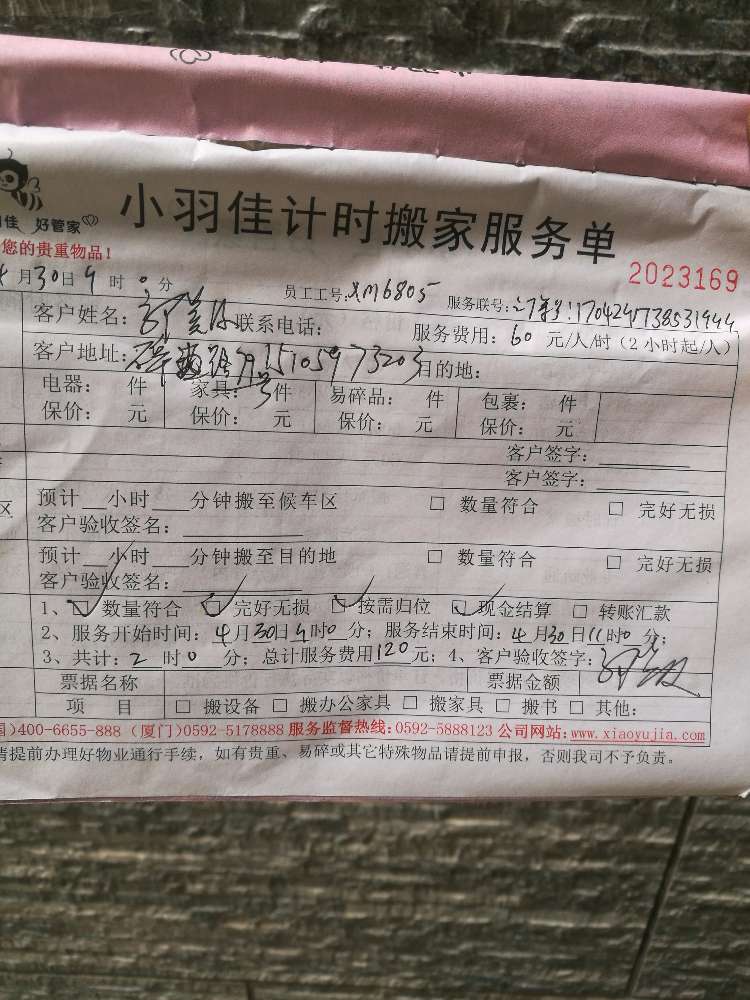 佳 好管家
小羽佳计时搬家服务单
您的贵重物品！
2023169
月30日9时0分 员工工号:XM6805 服务联号: 1704245738531944
客户姓名: 联系电话: 服务费用:60元/人/时(2小时起/人)
客户地址: 15105973203 目的地:
电器: 件 家具: 件 易碎品: 件 包裹: 件
保价: 元 保价: 元 保价: 元 保价: 元
客户签字:
客户签字:
区 预计 小时 分钟搬至候车区 □ 数量符合 □ 完好无损
客户验收签名:
预计 小时 分钟搬至目的地 □ 数量符合 □ 完好无损
客户验收签名:
1、☑ 数量符合 ☑ 完好无损 ☑ 按需归位 ☑ 现金结算 □ 转账汇款
2、服务开始时间:4月30日9时0分; 服务结束时间:4月30日11时0分;
3、共计:2时0分; 总计服务费用120元; 4、客户验收签字:
票据名称 票据金额
项 目 □ 搬设备 □ 搬办公家具 □ 搬家具 □ 搬书 □ 其他:
国)400-6655-888 (厦门)0592-5178888 服务监督热线:0592-5888123 公司网站:www.xiaoyujia.com
请提前办理好物业通行手续，如有贵重、易碎或其它特殊物品请提前申报，否则我司不予负责。